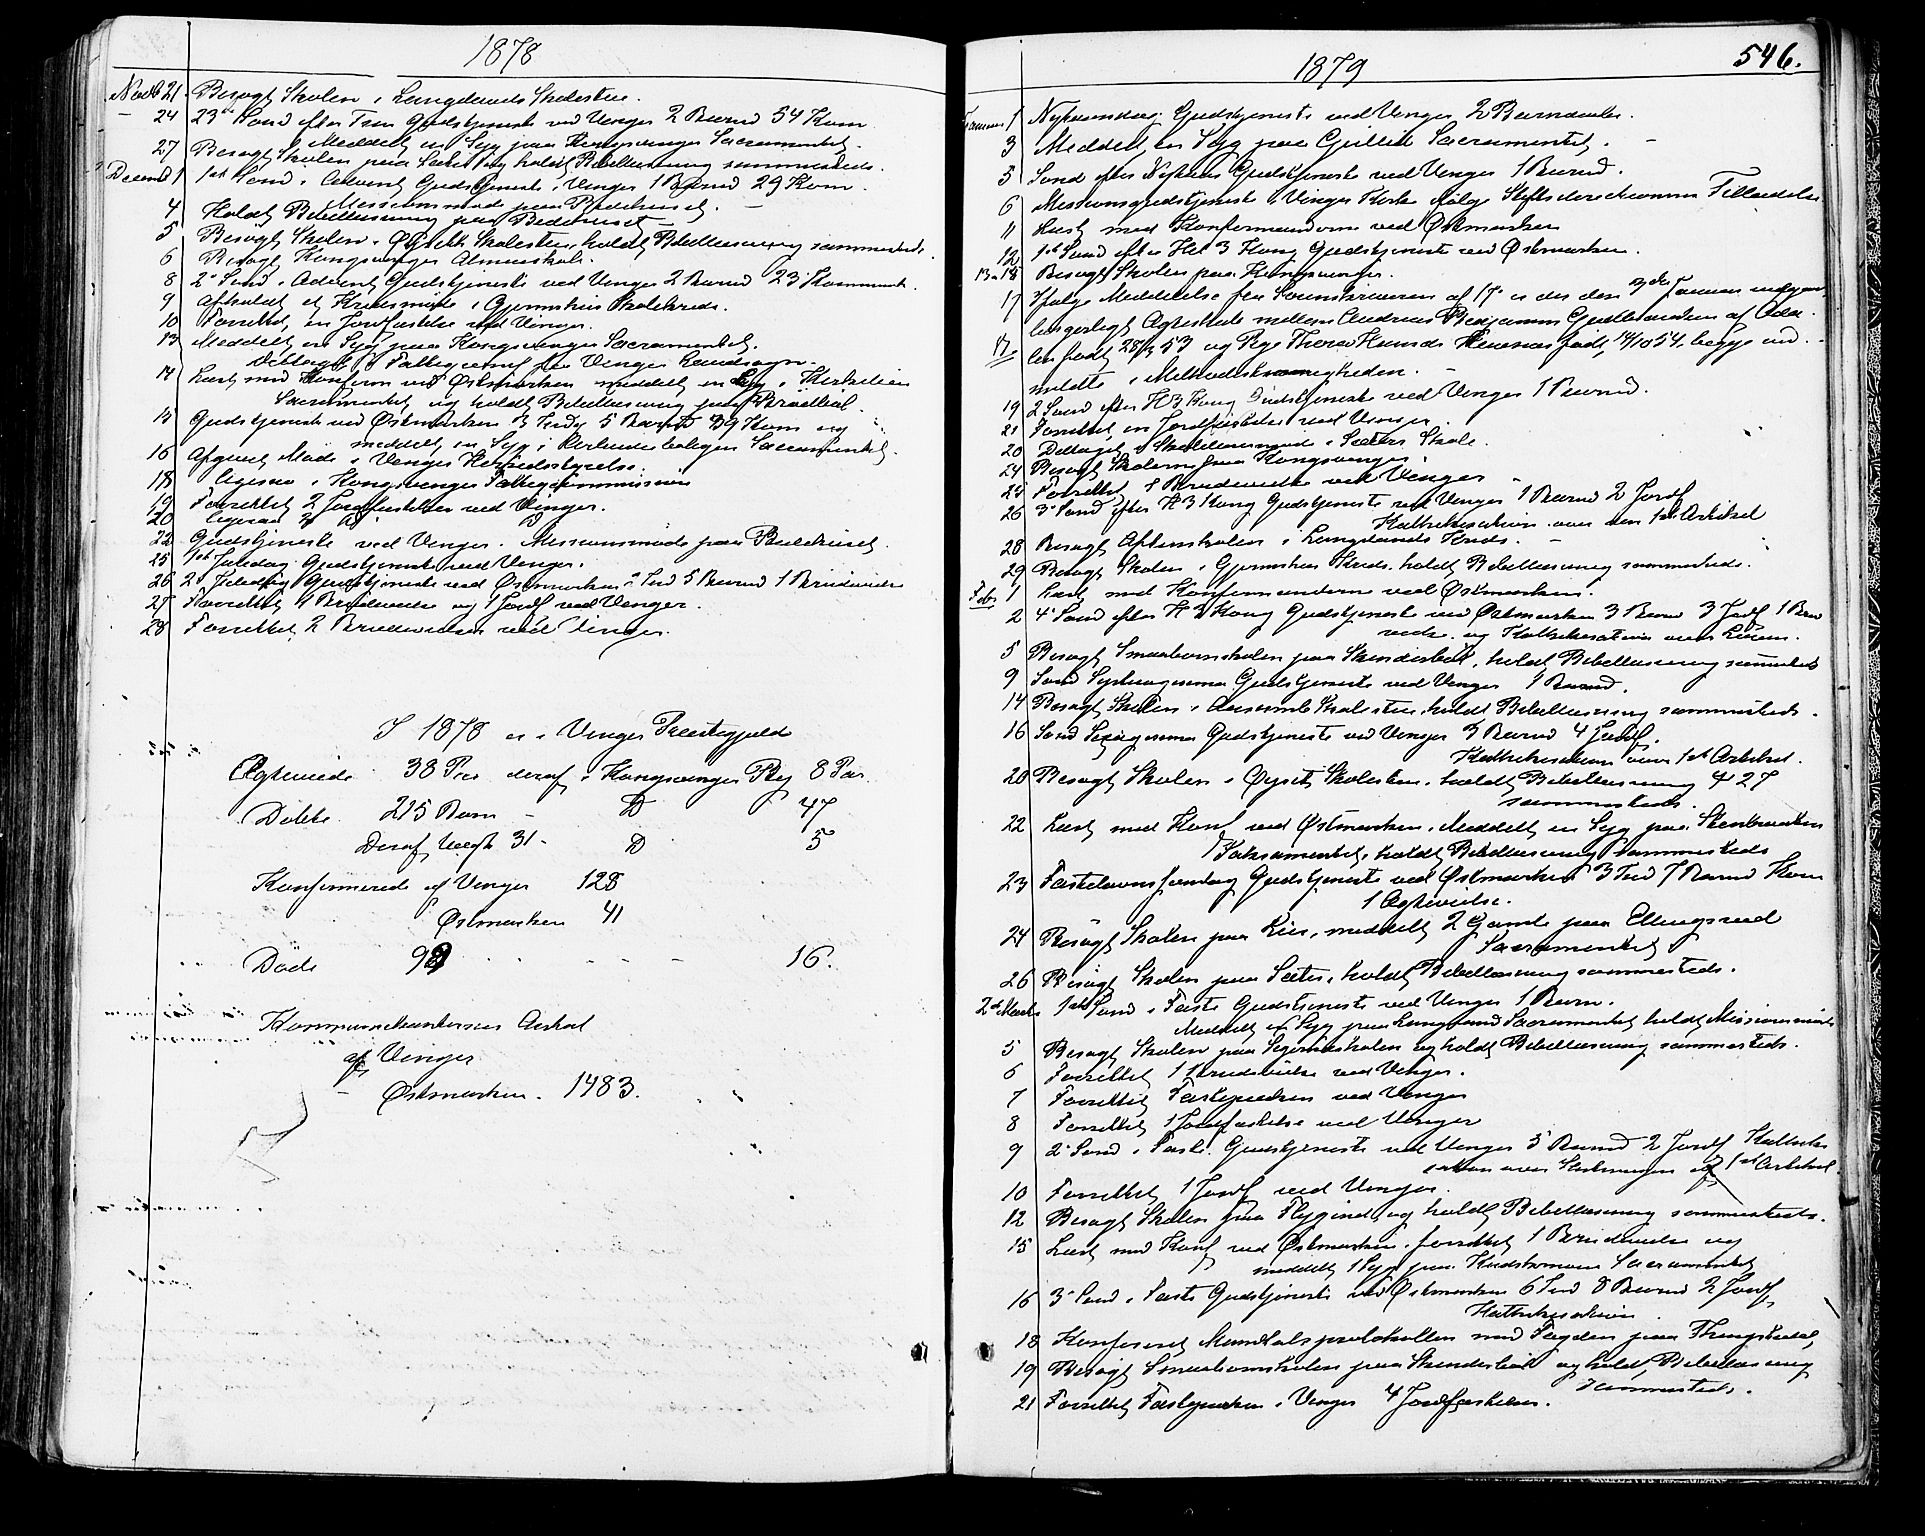 1878
Novb 21. Besøgt Skolen i Langelands Skolestue.
24 23de Sønd efter Trin Gudstjeneste ved Vinger 2 Barnd 54 Kom
Meddelt en Syg paa Kongsvinger Sacramentet.
27 Besøgt Skolen paa Sæter og holdt Bibellæsning sammesteds.
Decemb 1 1ste Sønd i Advent Gudstjeneste i Vinger 1 Barnd 29 Kom.
Missionsmøde paa Bedehuset.
4 Holdt Bibellæsning paa Bedehuset
5 Besøgt Skolen i Øiset Skolestue, holdt Bibellæsning sammesteds.
6 Besøgt Kongsvinger Almueskole.
8 2 Sønd i Advent Gudstjeneste ved Vinger 2 Barnd 23 Kommunik.
9 Afholdt et Kredsmøde i Gjermshus Skolekreds.
10 Forrettet en Jordfæstelse ved Vinger.
13 Meddelt en Syg paa Kongsvinger Sacramentet.
Deltaget i Fattigcomm for Vinger Landsogn.
14 Læst med Konfirm ved Østmarken meddelt en Syg i
Sacramentet og holdt Bibellæsning paa
15 Gudstjeneste ved Østmarken 3 5 Barnd 49 Kom og
meddelt en Syg i Sacramentet.
16 Afgivet Møde i Vinger Herredsstyrelse.
18 ligesaa i Kongsvinger Fattigcommission
19 Forrettet 2 Jordfæstelser ved Vinger.
20 ligesaa 3 D
22 Gudstjeneste ved Vinger. Missionsmøde paa Bedehuset.
25 1ste Juledag Gudstjeneste ved Vinger.
26 2 Juledag Gudstjeneste ved Østmarken 5 Barnd 1 Brudevielse
27 Forrettet 4 Brudevielse og 1 Jordf ved Vinger.
28 Forrettet 2 Brudevielser ved Vinger.
I 1878 er i Vinger Præstegjeld
Ægteviede 38 Par deraf i Kongsvinger By 8 Par
Døbte 215 Barn - D 47
Deraf Uegte 31 - D 5
Konfirmerede af Vinger 128
Østmarken 41
Døde 16.
Kommunikanternes Antal
af Vinger
- Østmarken. 1483.
546.
1879
Januar 1 Nytaarsdag. Gudstjeneste ved Vinger 2 Barndaabe.
3 Meddelt en Syg paa Sacramentet.
5 Sønd efter Nytaar Gudstjeneste ved Vinger 1 Barnd.
6 Missionsgudstjeneste i Vinger Kirke ifølge Stiftsdirectionens Tilladelse
11 Læst med Konfirmanderne ved Østmarken
12 1ste Sønd efter Hel 3 Kong Gudstjeneste ved Østmarken.
13 - 18 Besøgt Skolen paa Kongsvinger.
17 Ifølge Meddelelse fra Sorenskriveren af 17 er der den Januar indgaaet
borgerligt Ægteskab mellem Andreas Benjamin Gudbrandsen af
født og Pige Thora født begge ud-
meldte i Methodistmenigheden.
19 2 Sønd efter H 3 Kong Gudstjeneste ved Vinger 1 Barnd.
21 Forrettet en Jordfæstelse ved Vinger.
20 Deltaget i Skolekommissionsmøde i Sæter Skole.
24 Besøgt Skolerne paa Kongsvinger.
25 Forrettet 1 Brudevielse ved Vinger
26 3 Sønd efter H 3 Kong Gudstjeneste ved Vinger 1 Barnd 2 Jordf
Kathekisation over den 1ste Artikel
28 Besøgt Aftenskolen i Langelands Kreds.
29 Besøgt Skolen i Gjermshus Kreds. holdt Bibellæsning sammesteds.
Feb 1 Læst med Konfirmanderne ved Østmarken.
2 4 Sønd efter H 3 Kong Gudstjeneste ved Østmarken 3 Barnd 3 Jordf 1 Brud
vielse og Kathekisation over Loven.
5 Besøgt Smaabørnskolen paa holdt Bibellæsning sammesteds
9 Sønd Septuagesima Gudstjeneste ved Vinger 1 Barnd.
14 Besøgt Skolen i Skolestue, holdt Bibellæsning sammesteds.
16 Sønd Sexagesima Gudstjeneste ved Vinger 3 Barnd 4 Jordf.
Kathekisation over 1ste Artikel.
20 Besøgt Skolen i Øiset Skolestue, holdt Bibellæsning
sammesteds.
22 Læst med Konf ved Østmarken. Meddelt en Syg paa
Saksamentet, holdt Bibellæsning sammesteds
23 Fastelavnssøndag Gudstjeneste ved Østmarken 3 7 Barnd Kom
1 Ægtevielse.
24 Besøgt Skolen paa Lier, meddelt 2 Gamle paa Ellingsrud
Sacramentet
26 Besøgt Skolen paa Sæter, holdt Bibellæsning sammesteds.
2d Marts 1ste Sønd i Faste Gudstjeneste ved Vinger 1 Barn.
Meddelt en Syg paa Langeland Sacramentet holdt Missionsmøde
5 Besøgt Skolen paa og holdt Bibellæsning sammesteds.
6 Forrettet 1 Brudevielse ved Vinger.
7 Forrettet Fasteprædiken ved Vinger
8 Forrettet 1 Jordfæstelse ved Vinger
9 2 Sønd i Faste. Gudstjeneste ved Vinger 5 Barnd 2 Jordf Katheki-
sation over Slutningen af 1ste Artikel.
10 Forrettet 1 Jordf ved Vinger.
12 Besøgt Skolen paa Flygind og holdt Bibellæsning sammesteds.
15 Læst med Konf ved Østmarken. forrettet 1 Brudevielse og
meddelt 1 Syg paa Sacramentet
16 3 Sønd i Faste Gudstjeneste ved Østmarken 6 8 Barnd 2 Jordf
Kathekisation.
18 Konfereret Mandtalsprotokollen med Fogden paa
19 Besøgt Smaabørnskolen paa og holdt Bibellæsning
sammesteds.
21 Forrettet Fasteprædiken i Vinger 4 Jordfæstelser.